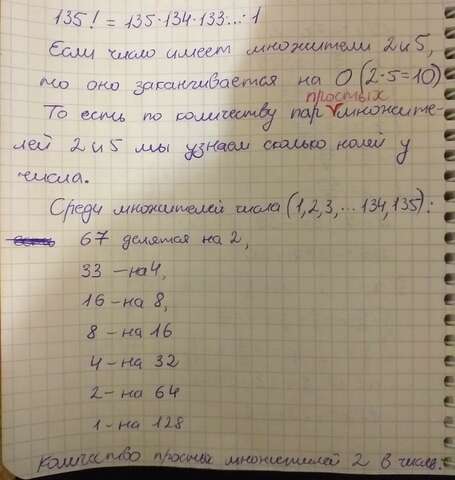 135! = 135·134·133...·1
Если число имеет множители 2 и 5,
то оно заканчивается на 0 (2·5=10)
простых
То есть по количеству пар множите-
лей 2 и 5 мы узнаем сколько нолей у
числа.
Среди множителей числа (1,2,3,...134,135):
67 делятся на 2,
33 – на 4,
16 – на 8,
8 – на 16
4 – на 32
2 – на 64
1 – на 128
Количество простых множителей 2 в числе.